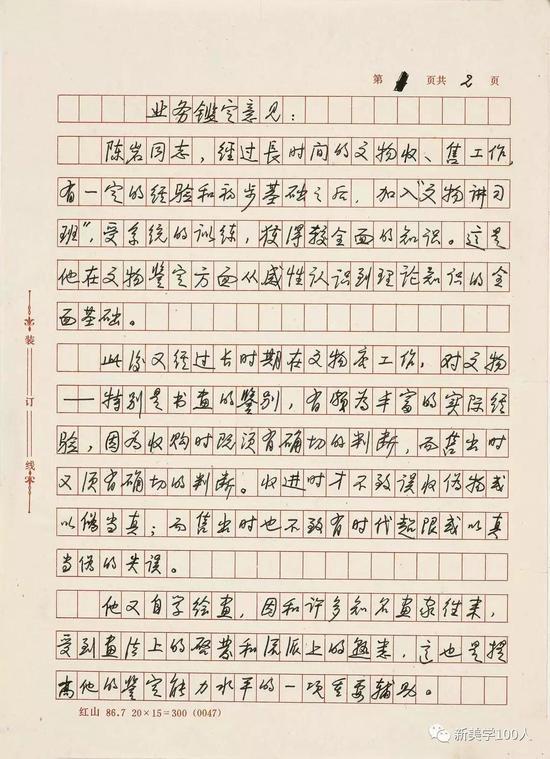 第 1 页共 2 页
业务鑑定意见：
陈岩同志，经过長时间的文物收、售工作，
有一定的经验和初步基础之后，加入"文物讲习
班"，受系统的训练，获得较全面的知识。这是
他在文物鉴定方面从感性认识到理论知识的全
面基础。
此后又经过长时期在文物店工作，对文物
——特别是书画的鉴别，有颇为丰富的实际经
验，因为收购时既须有确切的判断，而售出时
又须有确切的判断。收进时才不致误收伪物或
以伪当真；而售出时也不致有时代超限或以真
当伪的失误。
他又自学绘画，因和许多知名画家往来，
受到画法上的启蒙和流派上的熟悉，这也是提
高他的鉴定能力水平的一项重要辅助。
装
订
线
红山 86.7 20×15=300 (0047)
新美学100人